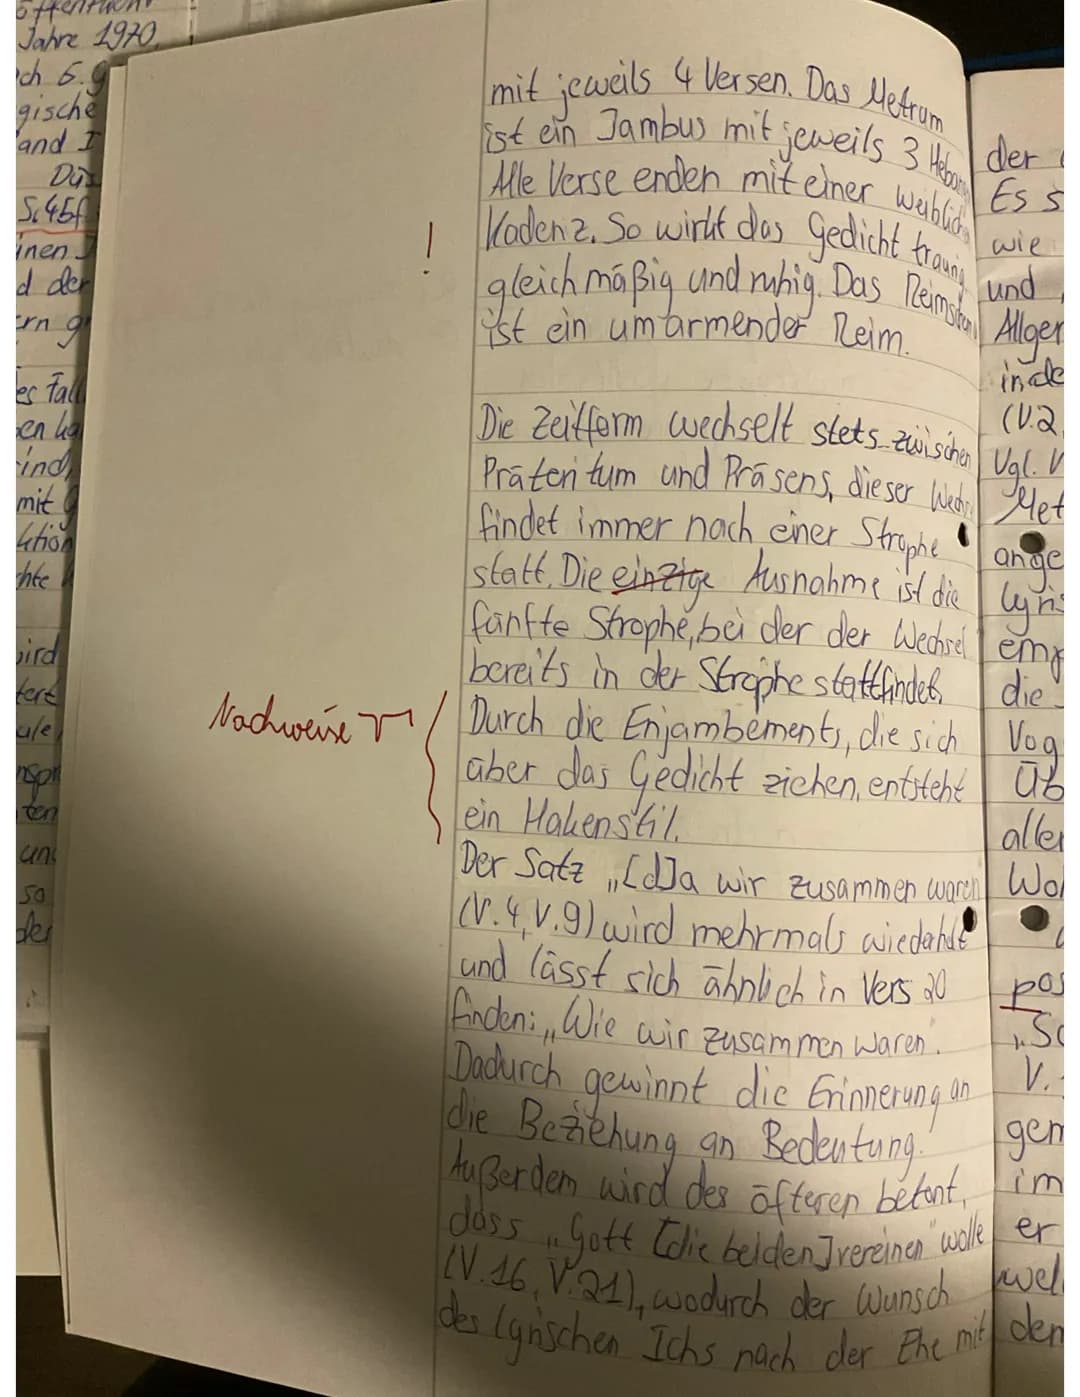 öffentlich
Jahre 1970,
ch S. 9
gische
and I
S. 45f
inen
d der
ern
es Fall
ind,
mit
ktion
chte
wird
so
der
mit jeweils 4 Versen. Das Metrum
ist ein Jambus mit jeweils 3 Hebun
Alle Verse enden mit einer weiblich
! Kadenz. So wirkt das Gedicht traurig
gleichmäßig und ruhig. Das Reimschem
ist ein umarmender Reim.
Die Zeitform wechselt stets zwischen
Präteritum und Präsens, dieser Wechs
findet immer nach einer Strophe
statt. Die einzige Ausnahme ist die
fünfte Strophe, bei der der Wechsel
bereits in der Strophe stattfindet.
Nachweise
Durch die Enjambements, die sich
über das Gedicht ziehen, entsteht
ein Hakenstil.
Der Satz „[d]a wir zusammen waren
(V.4, V.9) wird mehrmals wiederholt
und lässt sich ähnlich in Vers 20
finden: „Wie wir zusammen waren".
Dadurch gewinnt die Erinnerung an
die Beziehung an Bedeutung.
Außerdem wird des öfteren betont,
dass „Gott [die beiden] vereinen" wolle
(V.16, V.21), wodurch der Wunsch
des lyrischen Ichs nach der Ehe mit
der
Es s
wie
und
Allger
inde
(V.2,
Vgl. V
Met
ange
lyris
emp
die
Vog
Üb
aller
Wo
pos
„So
V.
gem
im
er
wel
den